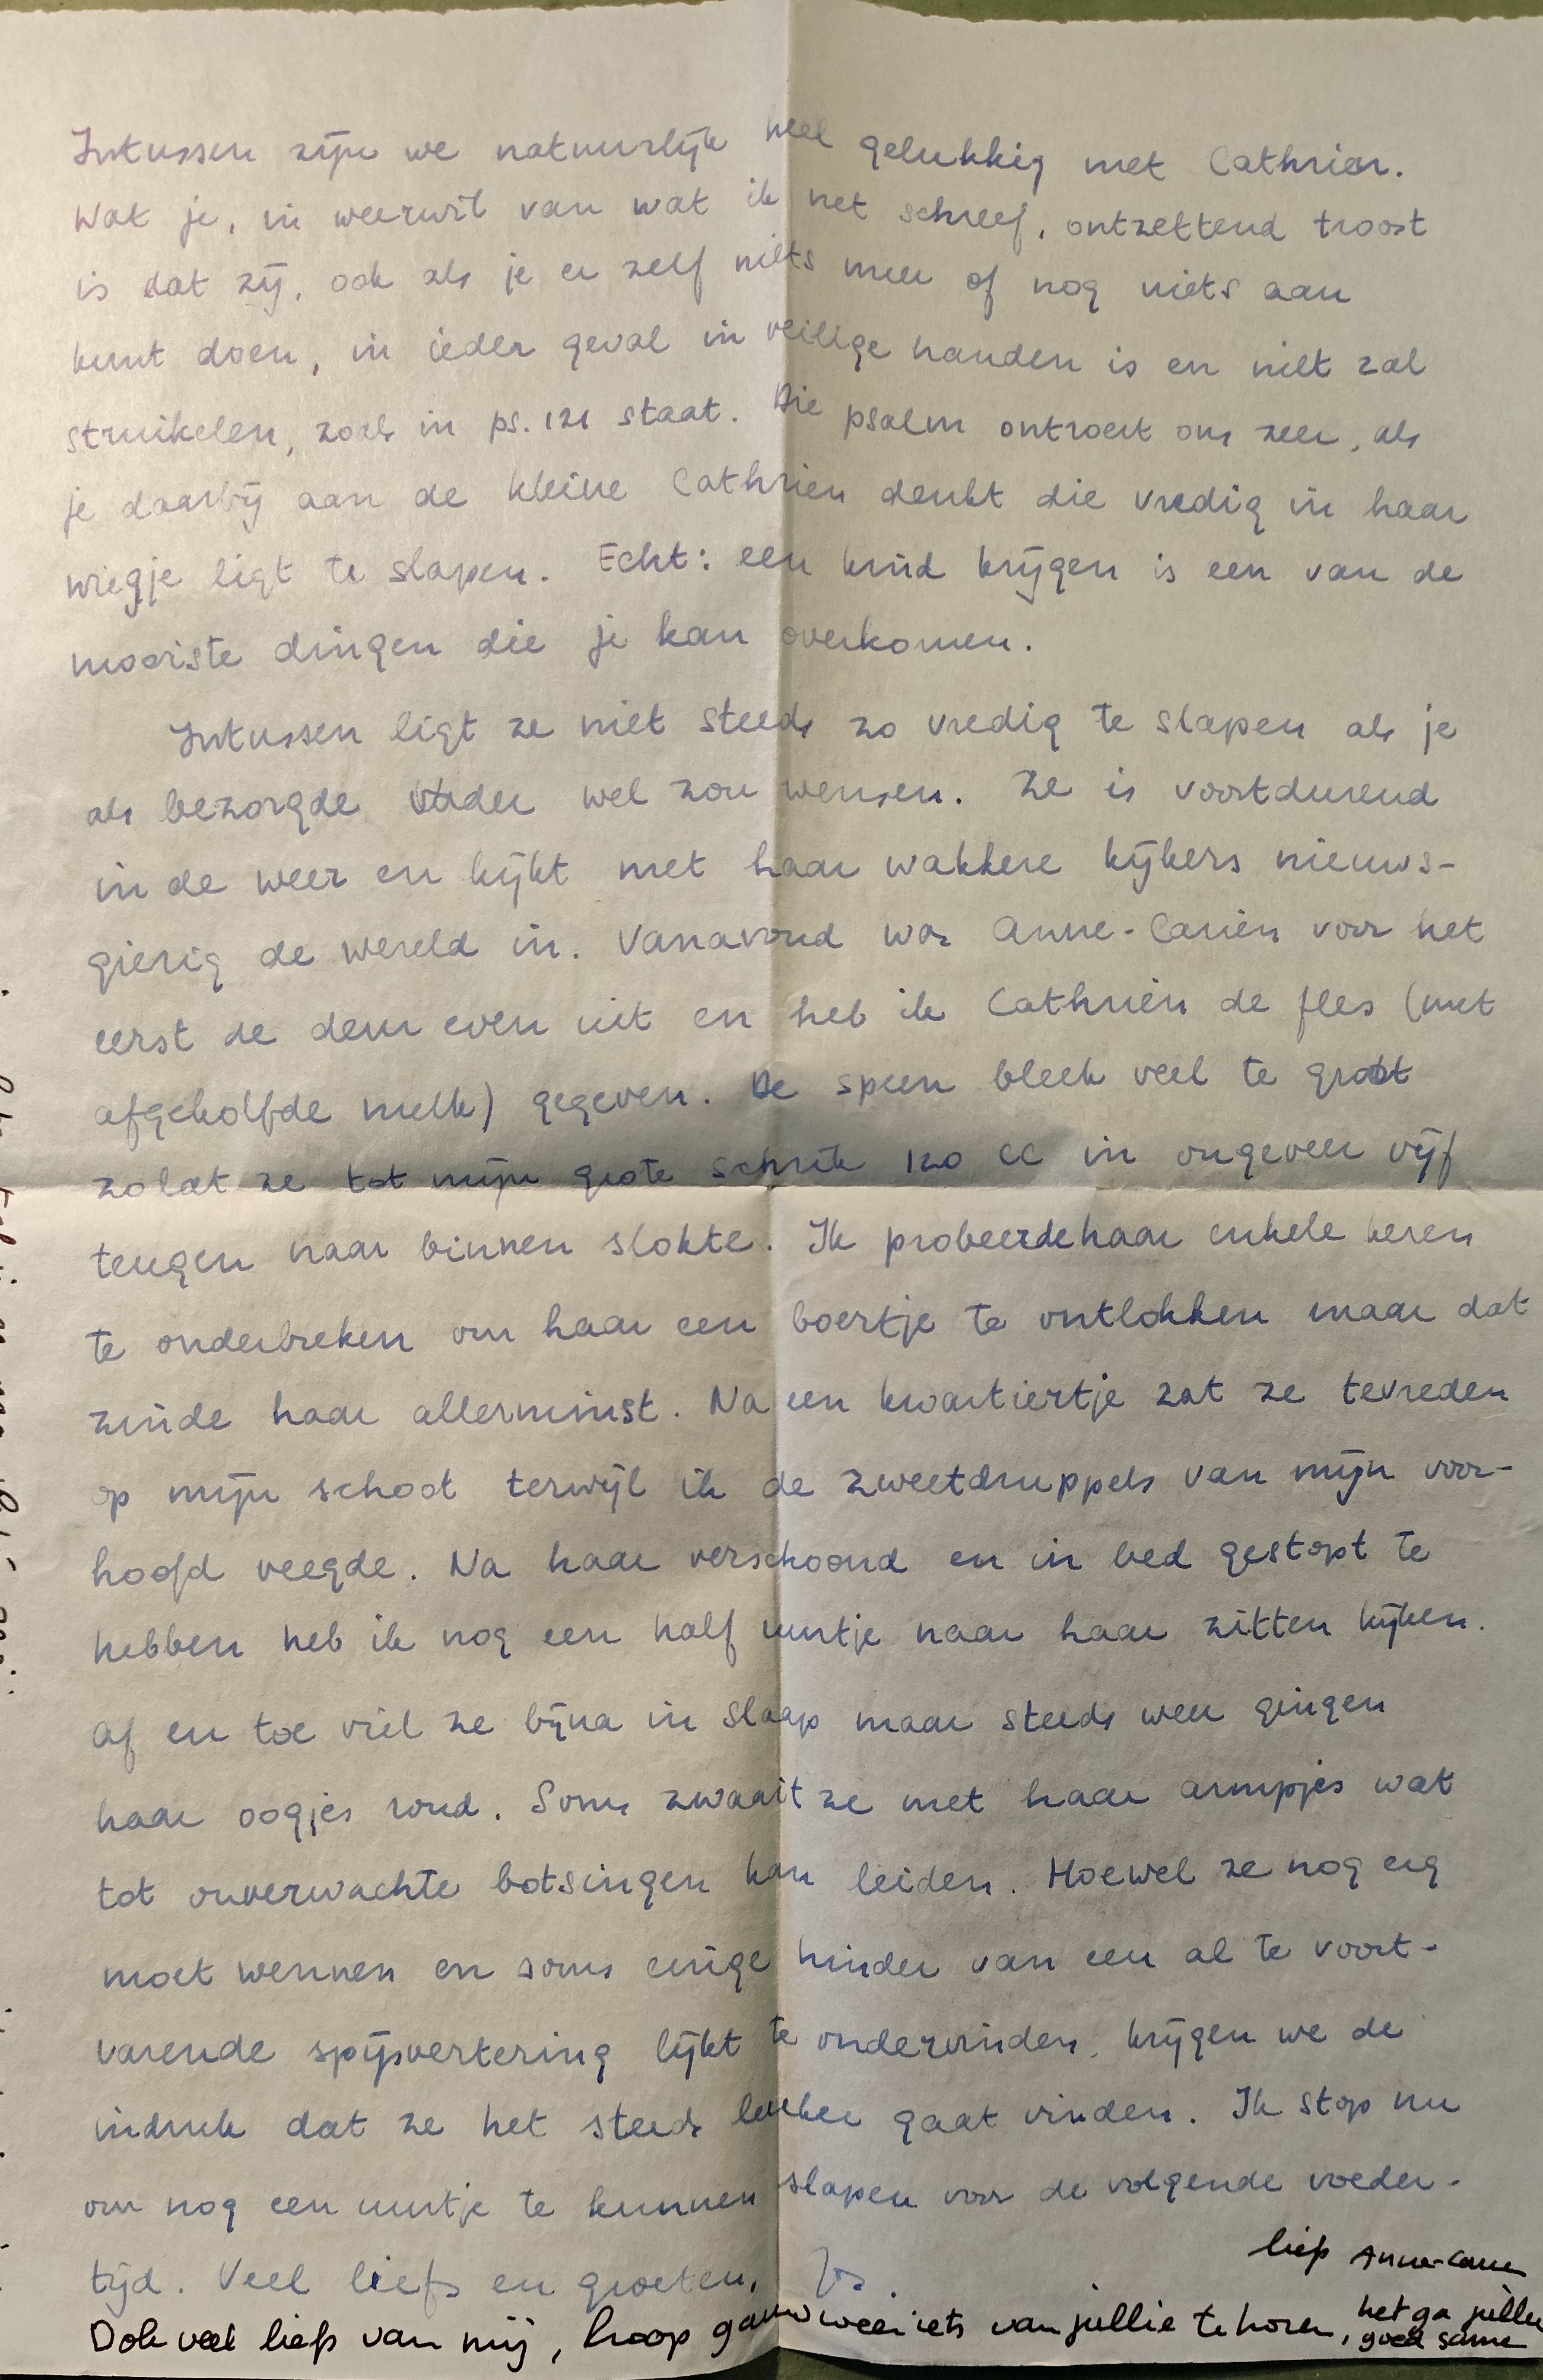 Intussen zijn we natuurlijk heel gelukkig met Cathrien.
Wat je, in weerwil van wat ik net schreef, ontzettend troost
is dat zij, ook als je er zelf niets meer of nog niets aan
kunt doen, in ieder geval in veilige handen is en niet zal
struikelen, zoals in ps. 121 staat. Die psalm ontroert ons zeer, als
je daarbij aan de kleine Cathrien denkt die vredig in haar
wiegje ligt te slapen. Echt: een kind krijgen is een van de
mooiste dingen die je kan overkomen.
Intussen ligt ze niet steeds zo vredig te slapen als je
als bezorgde vader wel zou wensen. Ze is voortdurend
in de weer en kijkt met haar wakkere kijkers nieuws-
gierig de wereld in. Vanavond was Anne-Carien voor het
eerst de deur even uit en heb ik Cathrien de fles (met
afgekolfde melk) gegeven. De speen bleek veel te groot
zodat ze tot mijn grote schrik 120 cc in ongeveer vijf
teugen naar binnen slokte. Ik probeerde haar enkele keren
te onderbreken om haar een boertje te ontlokken maar dat
zinde haar allerminst. Na een kwartiertje zat ze tevreden
op mijn schoot terwijl ik de zweetdruppels van mijn voor-
hoofd veegde. Na haar verschoond en in bed gestopt te
hebben heb ik nog een half uurtje naar haar zitten kijken.
Af en toe viel ze bijna in slaap maar steeds weer gingen
haar oogjes rond. Soms zwaait ze met haar armpjes wat
tot onverwachte botsingen kan leiden. Hoewel ze nog erg
moet wennen en soms enige hinder van een al te voort-
varende spijsvertering lijkt te ondervinden, krijgen we de
indruk dat ze het steeds leuker gaat vinden. Ik stop nu
om nog een uurtje te kunnen slapen voor de volgende voeder-
tijd. Veel liefs en groeten,
Ook veel liefs van mij, hoop gauw weer iets van jullie te horen, het ga jullie
goed samen
liefs Anne-Carien